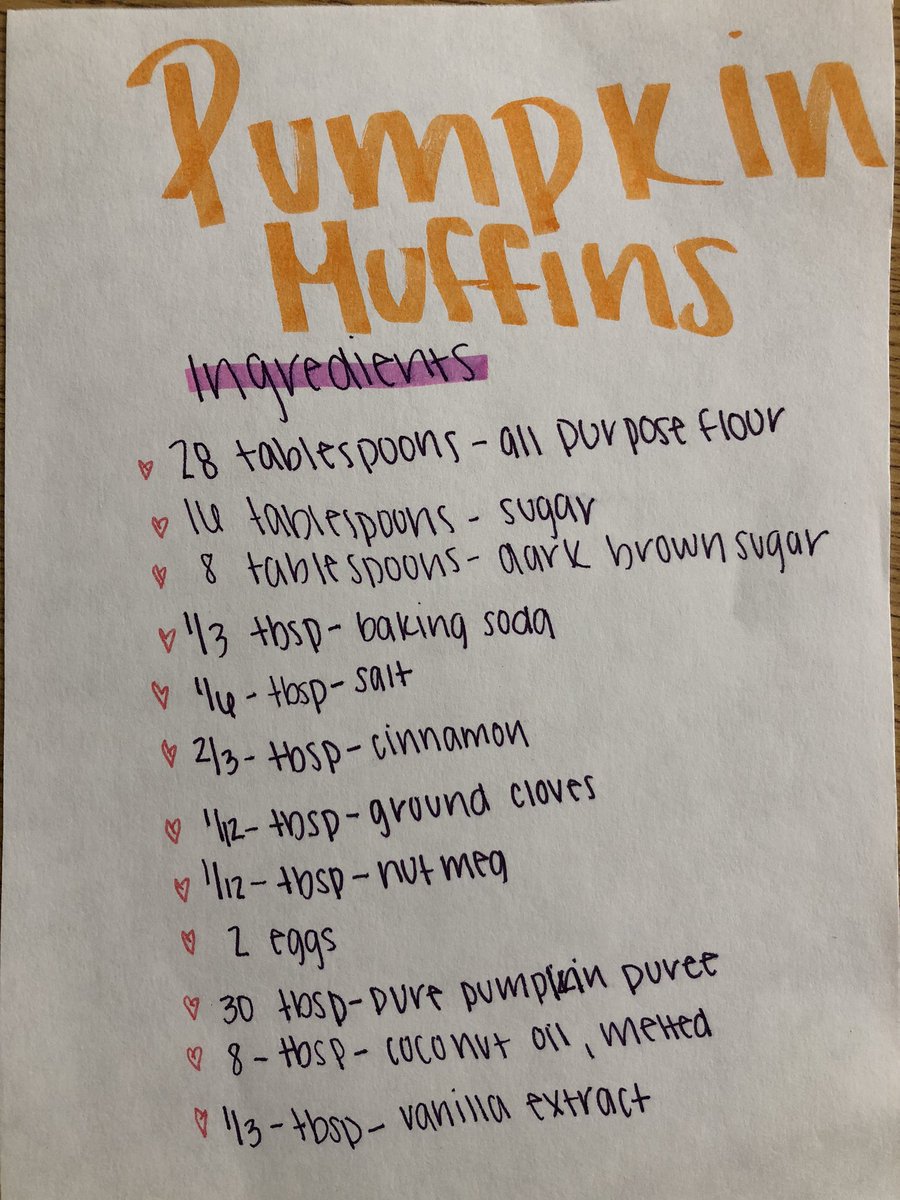 Pumpkin
Muffins
Ingredients
28 tablespoons - all purpose flour
16 tablespoons - sugar
8 tablespoons - dark brown sugar
1/3 tbsp - baking soda
1/6 - tbsp - salt
2/3 - tbsp - cinnamon
1/12 - tbsp - ground cloves
1/12 - tbsp - nutmeg
2 eggs
30 tbsp - pure pumpkin puree
8 - tbsp - coconut oil, melted
1/3 - tbsp - vanilla extract